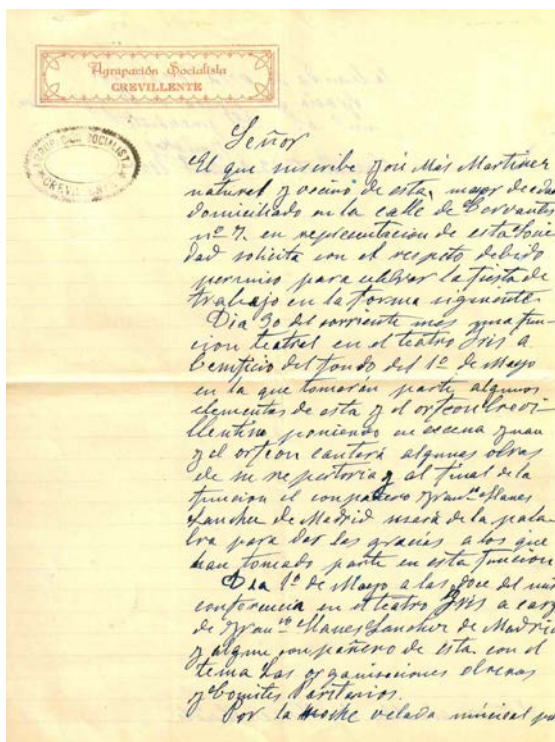 Agrupación Socialista
CREVILLENTE
AGRUPACION SOCIALISTA
CREVILLENTE
Señor
El que suscribe José Más Martinez
natural y vecino de esta, mayor de edad
domiciliado en la calle de Cervantes
nº 7. en representacion de esta Socie
dad solicita con el respeto debido
permiso para celebrar la fiesta de
trabajo en la forma siguiente.
Dia 30 del corriente mes una fun-
cion teatral en el teatro Iris a
beneficio del fondo del 1º de Mayo
en la que tomarán parte algunos
elementos de esta y el orfeon Crevi-
llentino poniendo en escena Juan
y el orfeon cantará algunas obras
de su repertorio y al final de la
funcion el compañero Franco Llanes
Sanchez de Madrid usará de la pala
bra para dar las gracias a los que
han tomado parte en esta funcion
Dia 1º de Mayo a las doce del
conferencia en el teatro Iris a car
de Franco Llanes Sanchez de Madrid
y algun compañero de esta con el
tema Las organisaciones obreras
y Comites Paritarios.
Por la noche velada músical